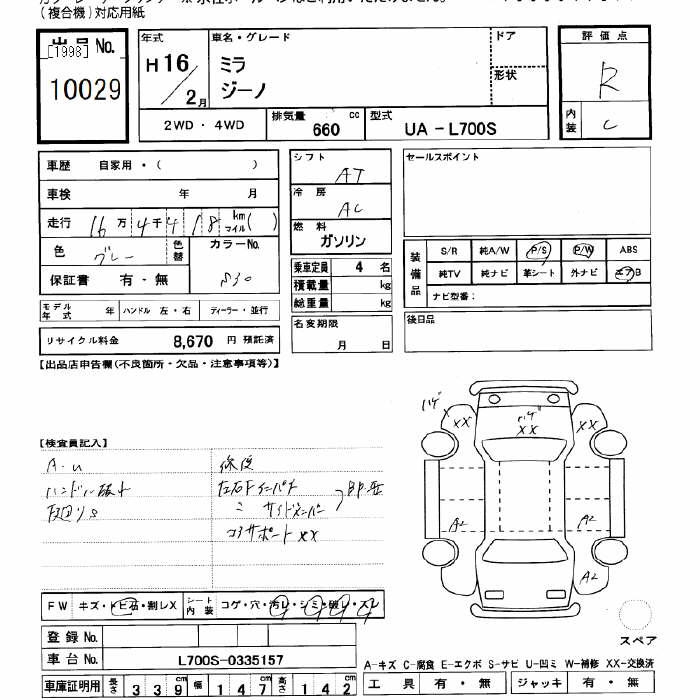 (複合機)対応用紙
出品 No.
[1998]
10029
年式
H 16 / 2月
車名・グレード
ミラ
ジーノ
ドア
形状
2WD・4WD
排気量 660 cc
型式 UA-L700S
評価点
R
内装 C
車歴 自家用・( )
車検 年 月
走行 16万4千418 km マイル( )
色 グレー 色替 カラーNo. S30
保証書 有・無
モデル年式 年 ハンドル 左・右 ディーラー・並行
リサイクル料金 8,670 円 預託済
シフト AT
冷房 AC
燃料 ガソリン
乗車定員 4 名
積載量 kg
総重量 kg
名変期限 月 日
セールスポイント
装備品
S/R 純A/W P/S P/W ABS
純TV 純ナビ 革シート 外ナビ エアB
ナビ型番:
後日品
【出品店申告欄(不良箇所・欠品・注意事項等)】
【検査員記入】
A・u
修復
コアサポート XX
ハゲ XX
ハゲ XX
XX
A2
A2
A2
FW キズ・トビ石・割レX シート内装 コゲ・穴・汚レ・シミ・破レ・スレ
登録 No.
車台 No. L700S-0335157
車庫証明用 長さ 339 cm 幅 147 cm 高さ 142 cm
スペア
A-キズ C-腐食 E-エクボ S-サビ U-凹ミ W-補修 XX-交換済
工具 有・無 ジャッキ 有・無